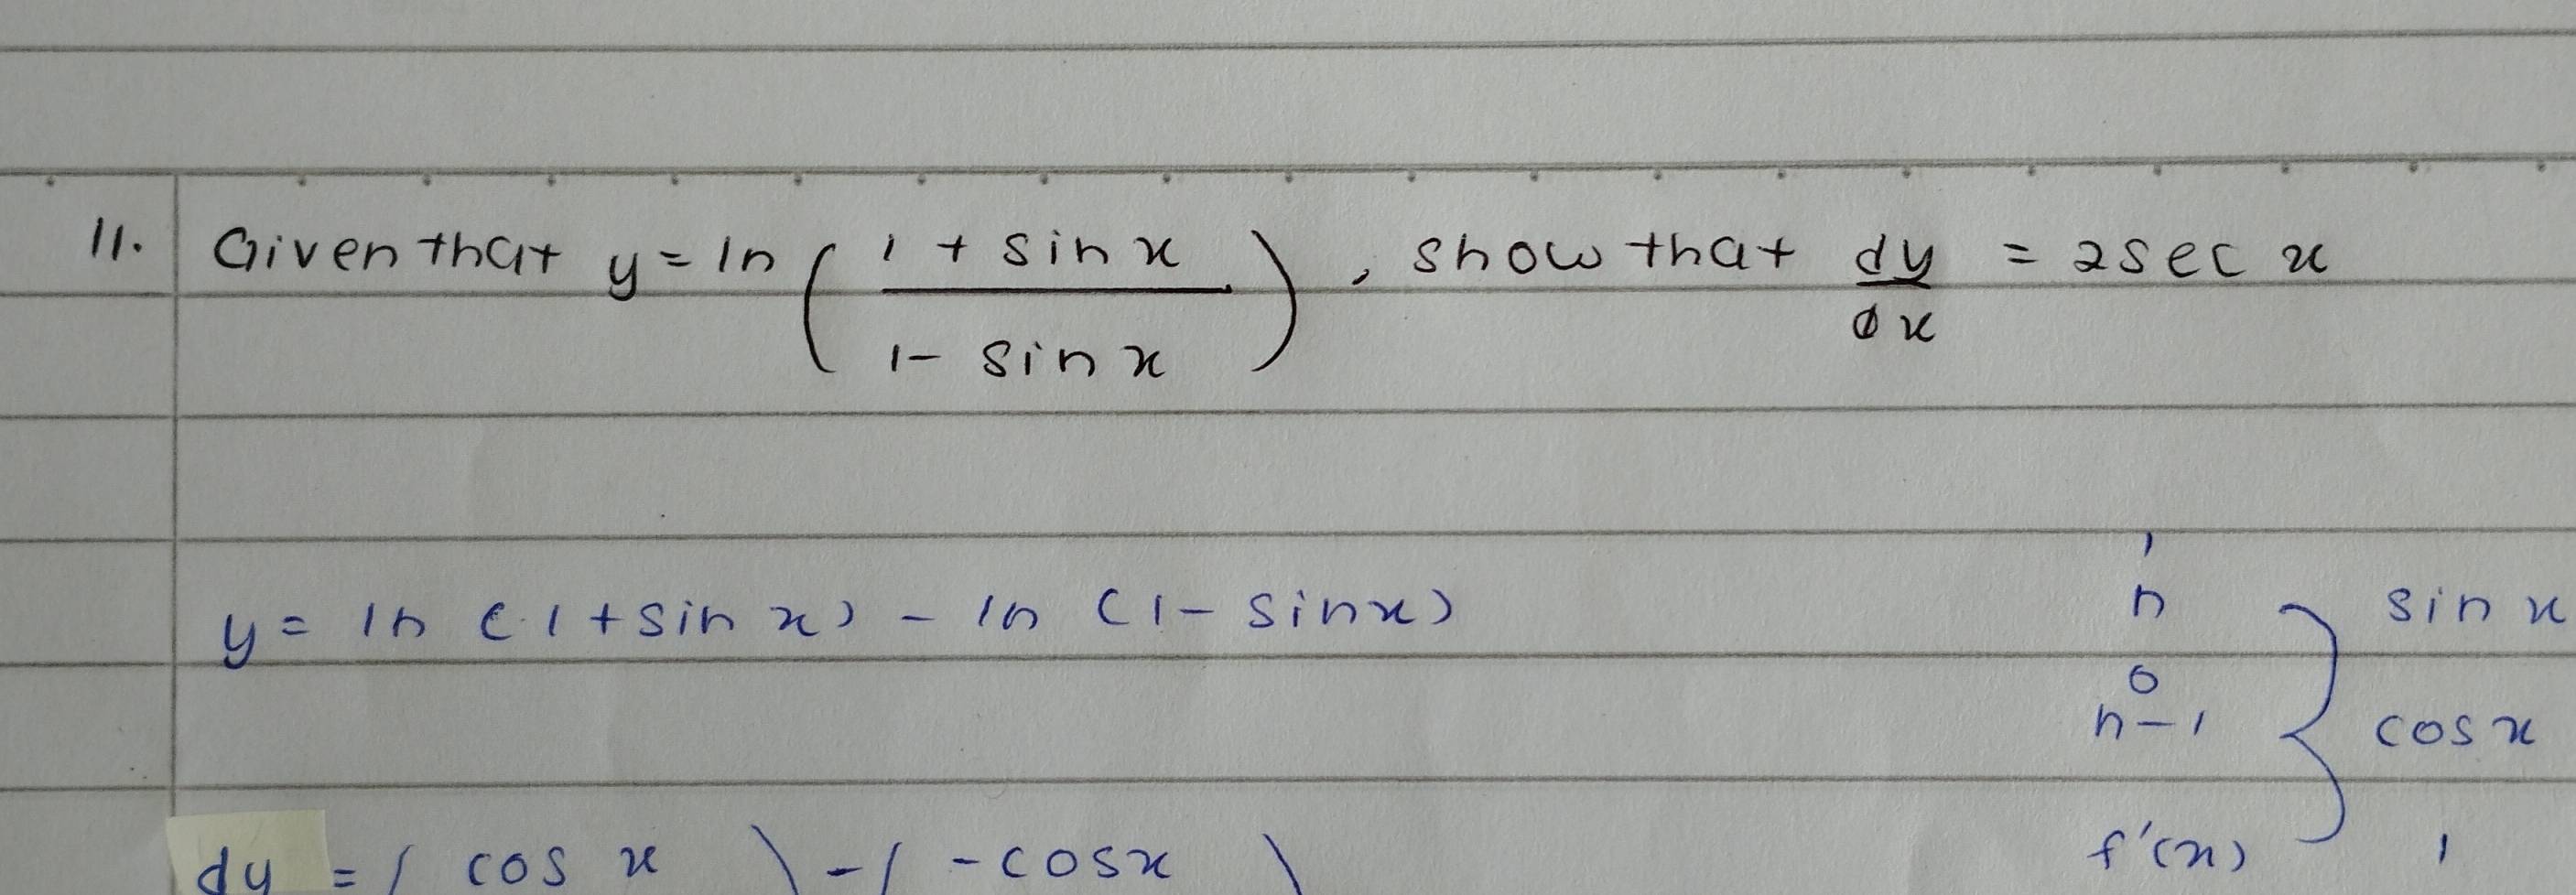 11. Given that y = ln ( 1 + sin x / 1 - sin x ), show that dy/dx = 2 sec x
y = ln (1 + sin x) - ln (1 - sin x)
1
n
sin x
0
n - 1
cos x
f'(x)
1
dy = ( cos x ) - ( -cos x )